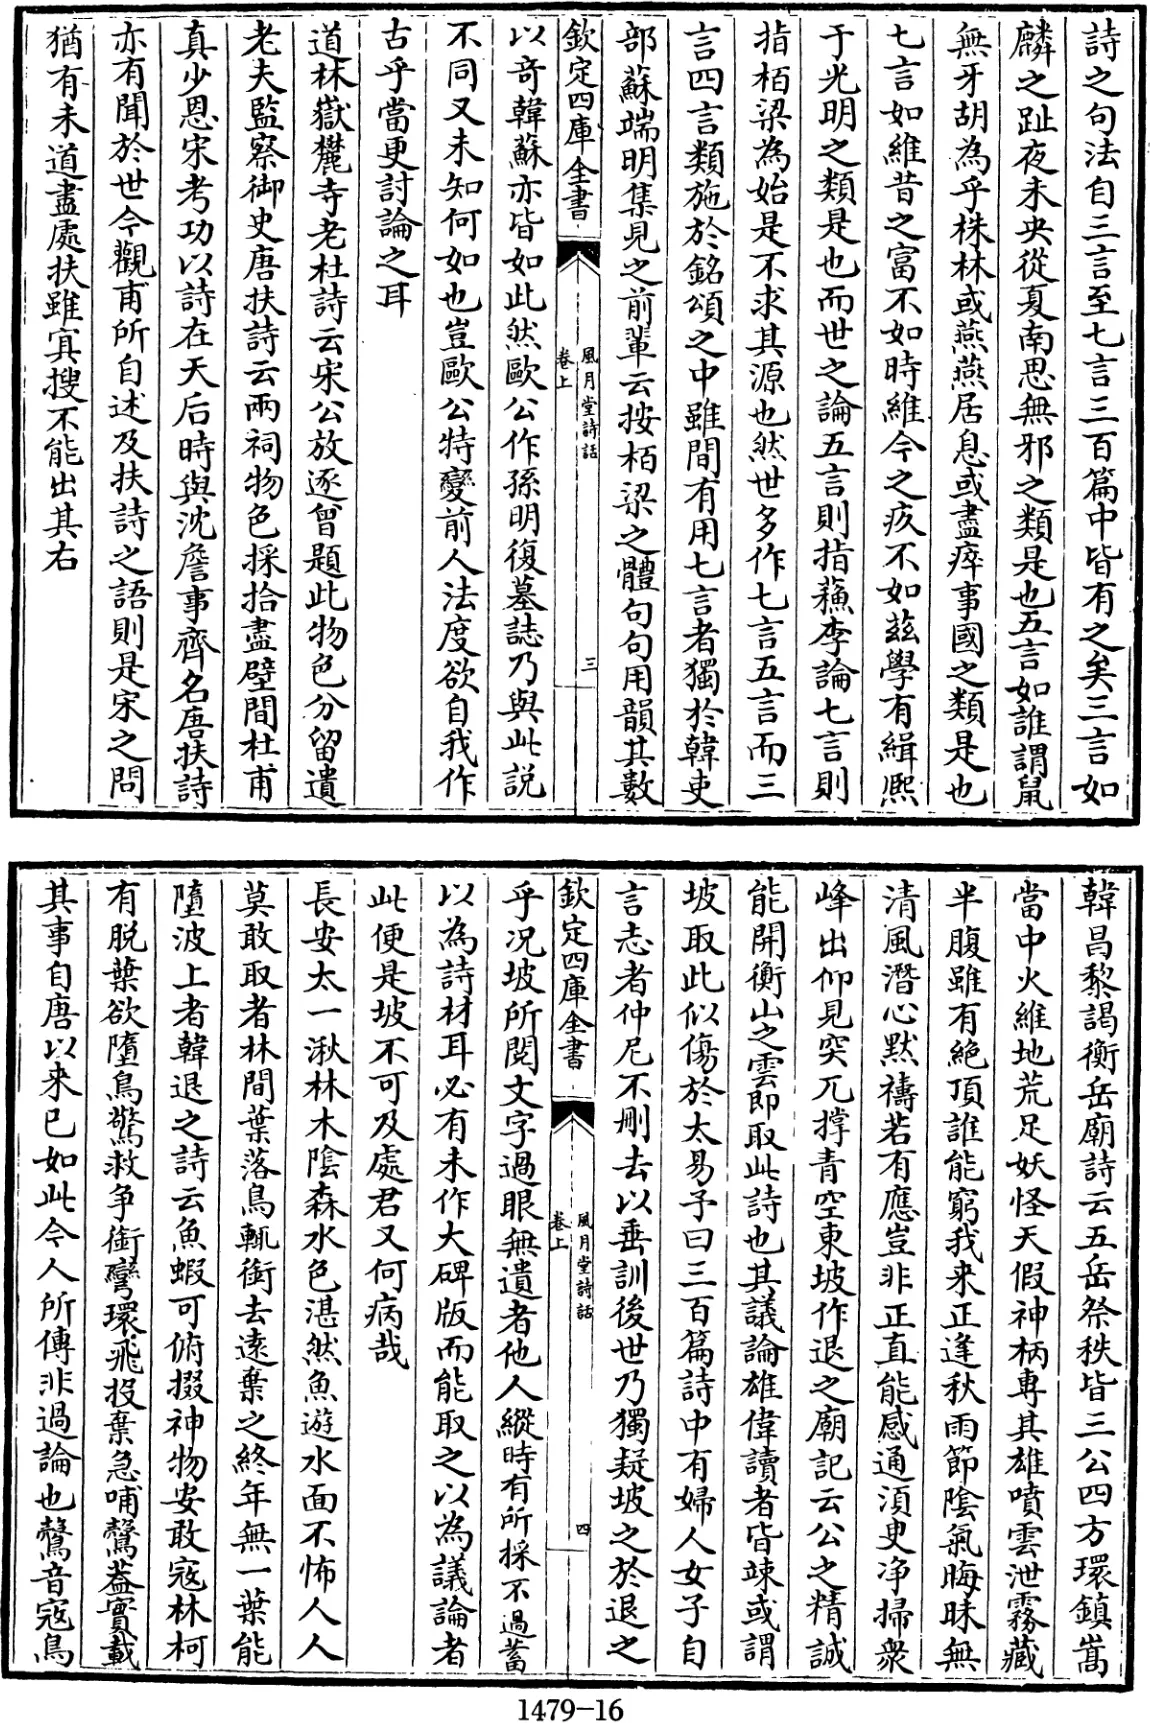 詩之句法自三言至七言三百篇中皆有之矣三言如
麟之趾夜未央從夏南思無邪之類是也五言如誰謂鼠
無牙胡為乎株林或燕燕居息或盡瘁事國之類是也
七言如維昔之富不如時維今之疚不如兹學有緝熈
于光明之類是也而世之論五言則指蘓李論七言則
指栢梁為始是不求其源也然世多作七言五言而三
言四言類施於銘頌之中雖間有用七言者獨於韓吏
部蘇端明集見之前輩云按栢梁之體句句用韻其數
欽定四庫全書
風月堂詩話
卷上
三
以奇韓蘇亦皆如此然歐公作孫明復墓誌乃與此説
不同又未知何如也豈歐公特變前人法度欲自我作
古乎當更討論之耳
道林嶽麓寺老杜詩云宋公放逐曾題此物色分留遺
老夫監察御史唐扶詩云兩祠物色採拾盡壁間杜甫
真少恩宋考功以詩在天后時與沈詹事齊名唐扶詩
亦有聞於世今觀甫所自述及扶詩之語則是宋之問
猶有未道盡處扶雖冥搜不能出其右
韓昌黎謁衡岳廟詩云五岳祭秩皆三公四方環鎮嵩
當中火維地荒足妖怪天假神柄專其雄噴雲泄霧藏
半腹雖有絶頂誰能窮我来正逢秋雨節陰氣晦昧無
清風潛心黙禱若有應豈非正直能感通須臾浄掃衆
峰出仰見突兀撑青空東坡作退之廟記云公之精誠
能開衡山之雲即取此詩也其議論雄偉讀者皆竦或謂
坡取此似傷於太易予曰三百篇詩中有婦人女子自
言志者仲尼不刪去以垂訓後世乃獨疑坡之於退之
欽定四庫全書
風月堂詩話
卷上
四
乎况坡所閲文字過眼無遺者他人縱時有所採不過蓄
以為詩材耳必有未作大碑版而能取之以為議論者
此便是坡不可及處君又何病哉
長安太一湫林木陰森水色湛然魚遊水面不怖人人
莫敢取者林間葉落鳥輒銜去遠棄之終年無一葉能
墮波上者韓退之詩云魚蝦可俯掇神物安敢寇林柯
有脱葉欲墮鳥驚救争銜彎環飛投棄急哺鷇葢實載
其事自唐以来已如此今人所傳非過論也鷇音寇鳥
1479-16